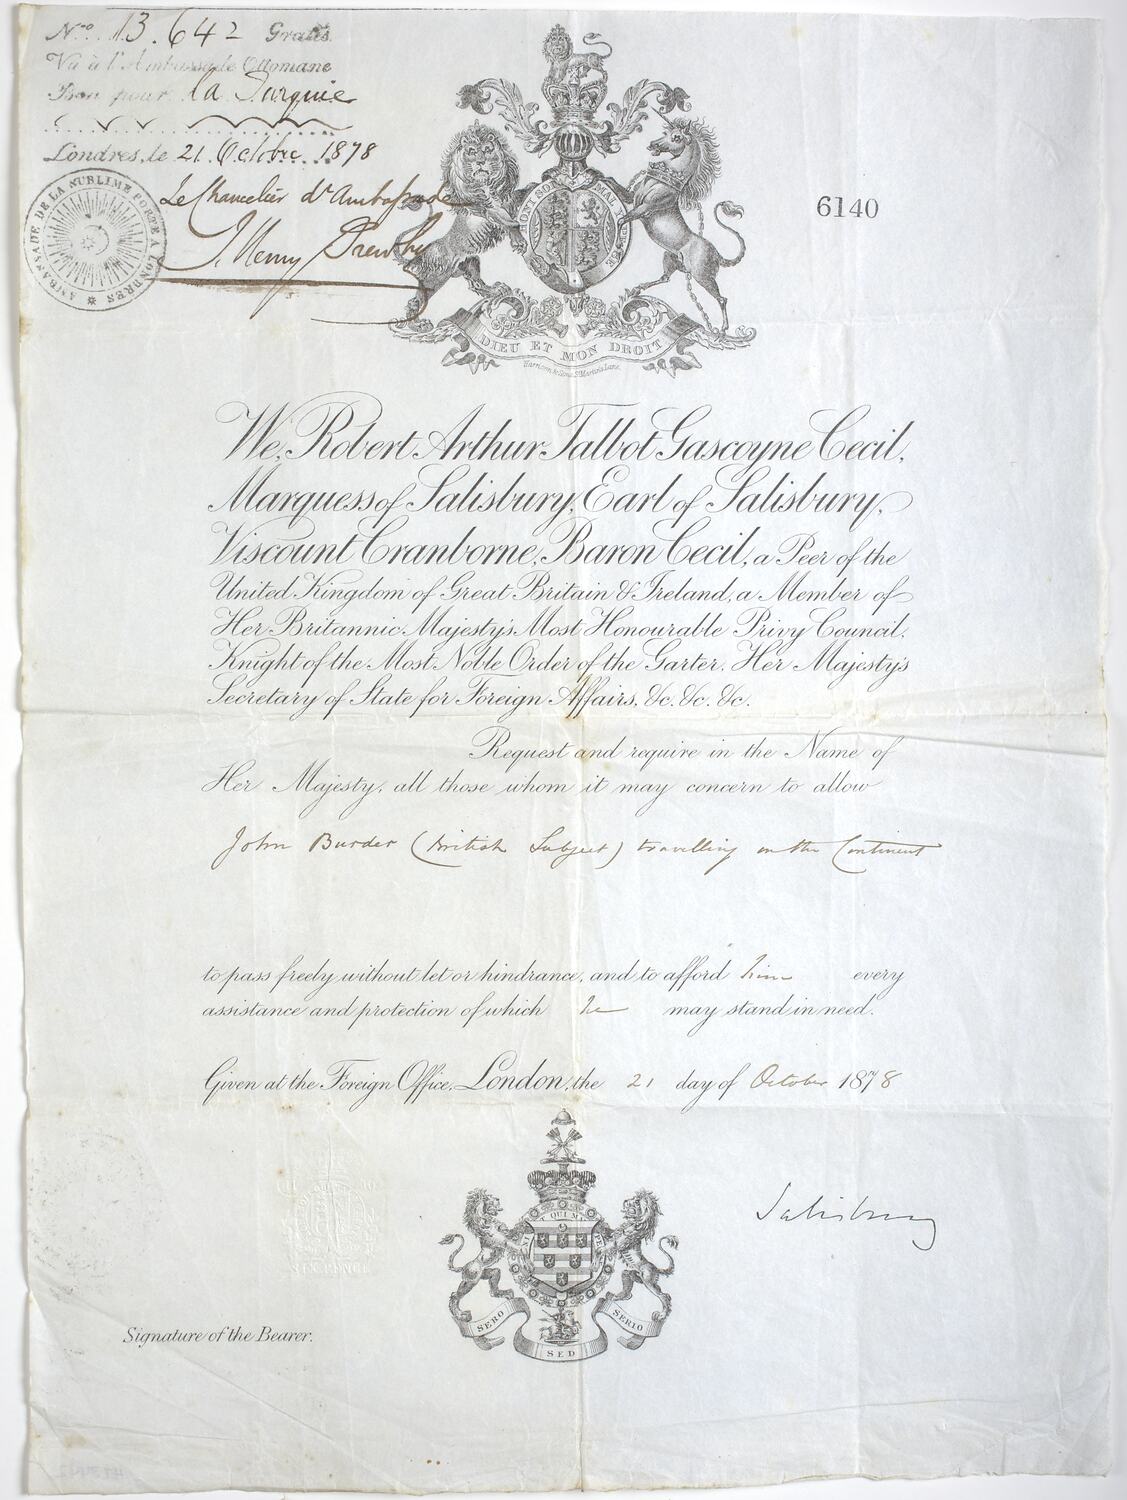 Nro. 13.642 Gratis
Vu à l'Ambassade Ottomane
Bon pour la Turquie
Londres, le 21 Octobre 1878
Le Chancelier d'Ambassade
J. Henry
AMBASSADE DE LA SUBLIME PORTE A LONDRES
HONI SOIT QUI MAL Y PENSE
DIEU ET MON DROIT
Harrison & Sons, St Martin's Lane.
6140
We, Robert Arthur Talbot Gascoyne Cecil,
Marquess of Salisbury, Earl of Salisbury,
Viscount Cranborne, Baron Cecil, a Peer of the
United Kingdom of Great Britain & Ireland, a Member of
Her Britannic Majesty's Most Honourable Privy Council,
Knight of the Most Noble Order of the Garter, Her Majesty's
Secretary of State for Foreign Affairs, &c. &c. &c.
Request and require in the Name of
Her Majesty, all those whom it may concern to allow
John Burder (British Subject) travelling on the Continent
to pass freely without let or hindrance, and to afford him every
assistance and protection of which he may stand in need.
Given at the Foreign Office, London, the 21 day of October 1878
Salisbury
SERO SED SERIO
Signature of the Bearer.